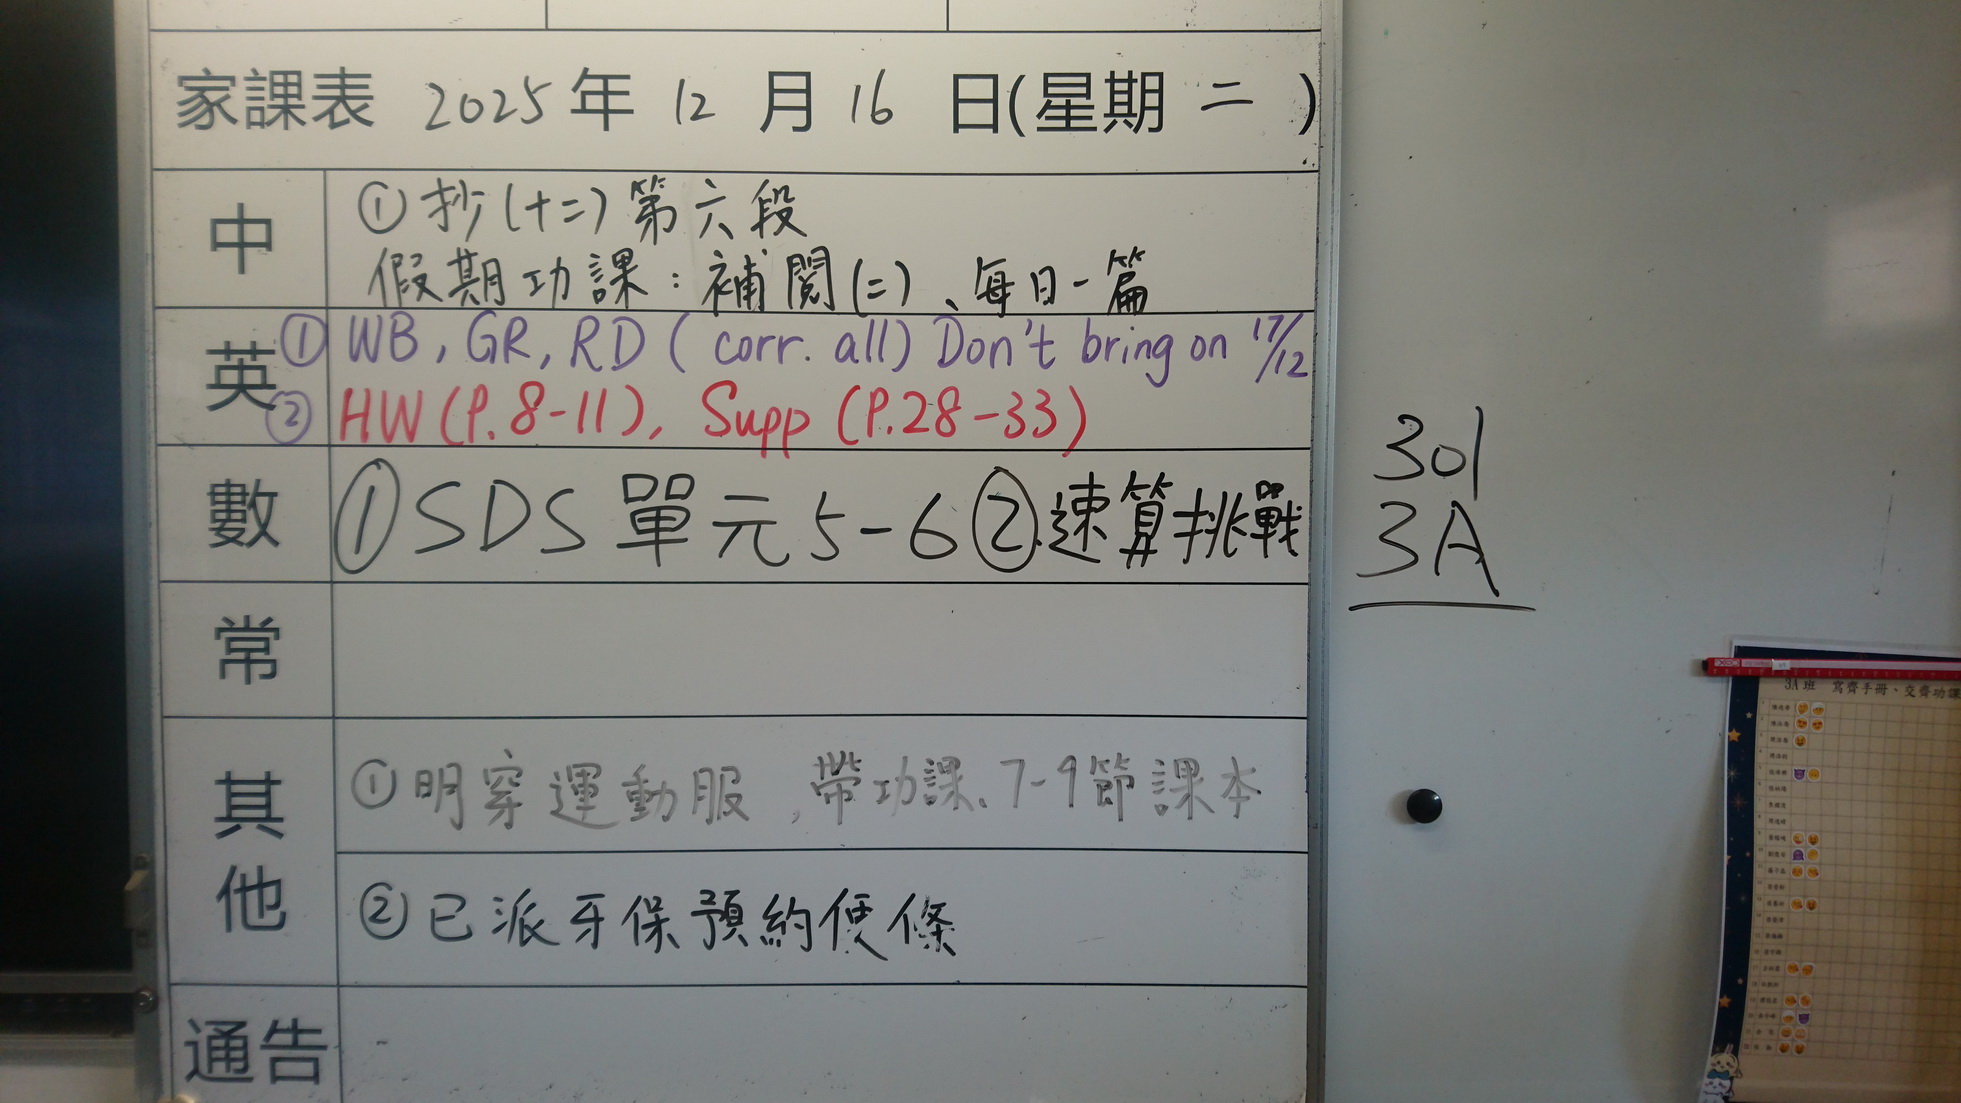 家課表 2025年 12 月 16 日(星期 二 )
中
①抄(十二)第六段
假期功課:補閱(二)、每日一篇
英
① WB, GR, RD ( corr. all) Don't bring on 17/12
② HW(P.8-11), Supp (P.28-33)
數
①SDS單元5-6②速算挑戰
常
其他
①明穿運動服,帶功課、7-9節課本
②已派牙保預約便條
通告
301
3A
3A班 寫齊手冊、交齊功課